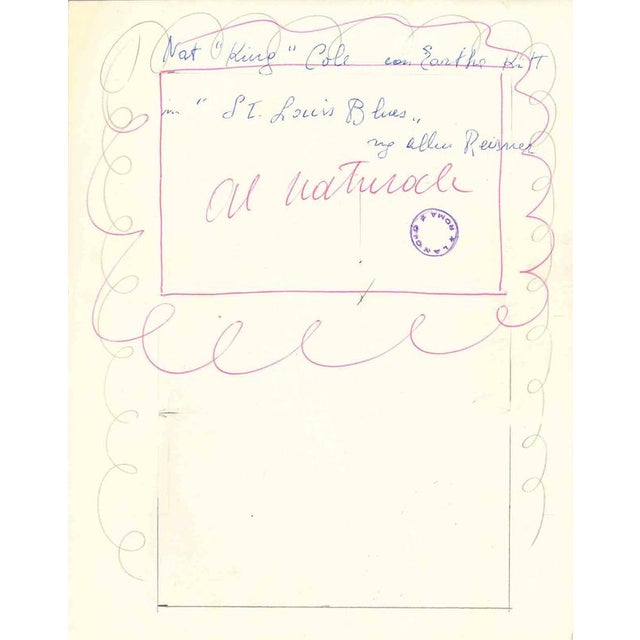 Nat "King" Cole con Eartha Kitt
in "St. Louis Blues"
rg allen Reisner
al naturale
ROMA